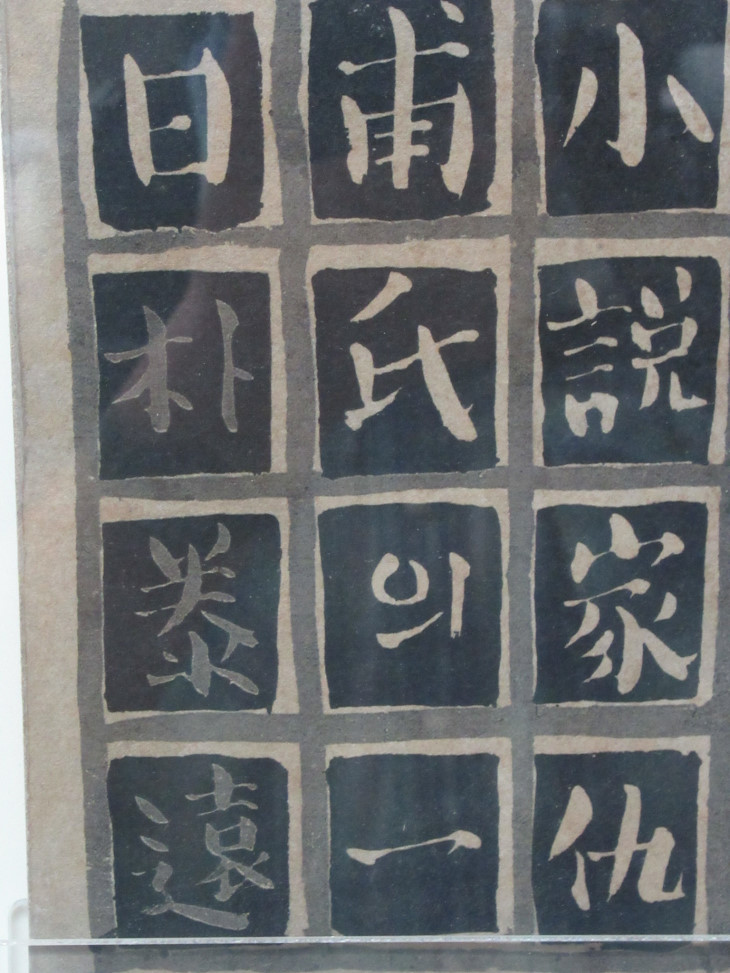 小說家仇
甫氏의一
日
朴泰遠